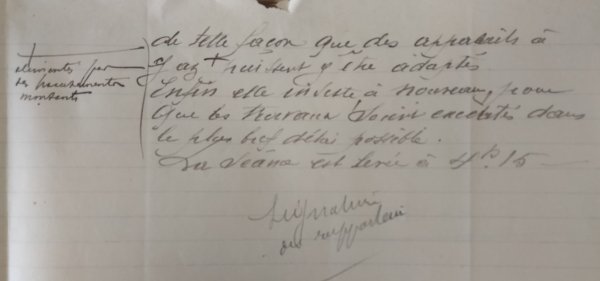 de telle façon que des appareils à
gaz + puissent y être adaptés
Enfin elle insiste à nouveau, pour
que les travaux soient exécutés dans
le plus bref délai possible.
La Séance est levée à 4h 15
par
montants
Signature
du rapporteur